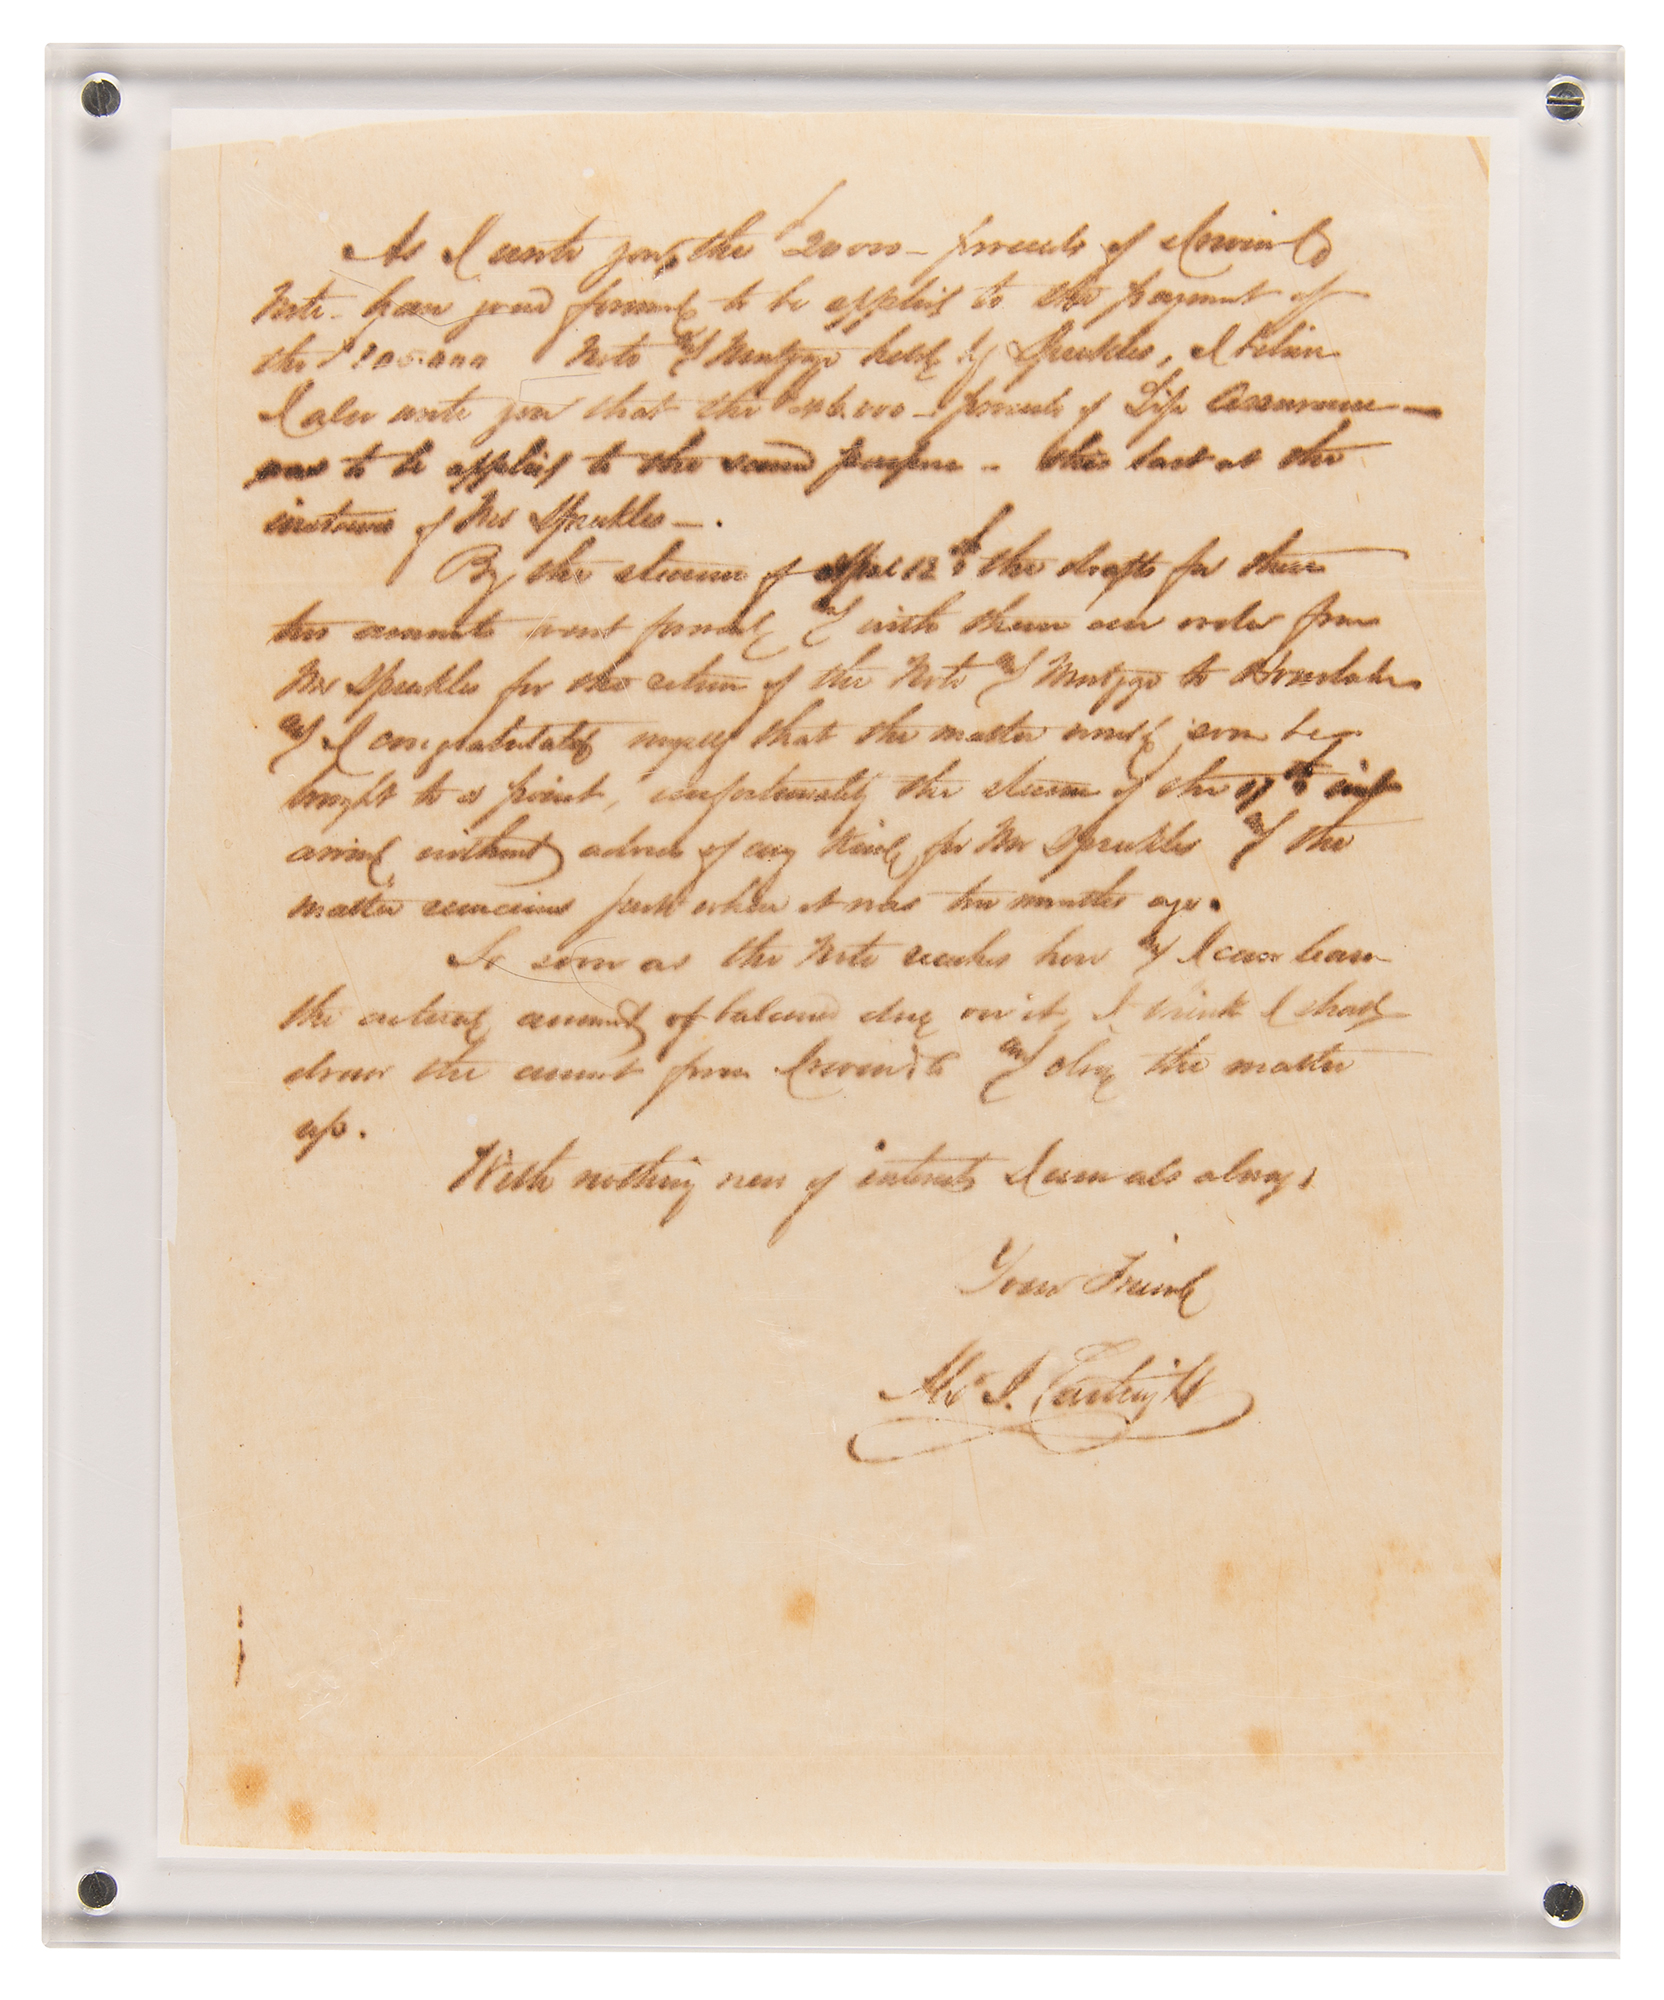 As I wrote you, the $20000 – proceeds of Irwin & Co
Note – have gone forward to be applied to the payment of
the $105.000 Note and Mortgage held by Spreckles, I believe
I also wrote you that the 46.000 – proceeds of Life Assurance –
was to be applied to the same purpose – this last at the
instance of Mr Spreckles – .
By the steamer of 12th the drafts for these
two amounts went forward, and with them an order from
Mr Spreckles for the return of the Note and Mortgage to Honolulu
and I congratulated myself that the matter would soon be
brought to a point, unfortunately the steamer of the 17th inst
arrived without advices of any kind for Mr Spreckles and the
matter remains just where it was two months ago.
So soon as the Note reaches here and I can learn
the actual amount of balance due on it, I think I shall
draw the amount from Irwin & Co and close the matter
up.
With nothing new of interest I am as always
Your Friend
J. Cartwright